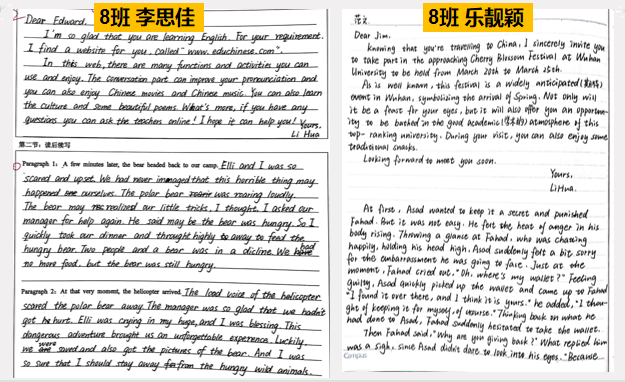 8班 李思佳
Dear Edward.
I'm so glad that you are learning English. For your requirement.
I find a website for you, called "www.educhinese.com".
In this web, there are many functions and activities you can
use and enjoy. The conversation part can improve your pronounciation and
you can also enjoy Chinese movies and Chinese music. You can also learn
the culture and some beautiful poems. What's more, if you have any
questions you can ask the teachers online! I hope it can help you!
Yours,
Li Hua
第二节：读后续写
Paragraph 1: A few minutes later, the bear headed back to our camp. Elli and I was so
scared and upset. We had never imaged that this horrible thing may
happened ourselves. The polar bear was roaring loudly.
The bear may realized our little tricks, I thought. I asked our
manager for help again. He said may be the bear was hungry. So I
quickly took our dinner and throught highly to away to feed the
hungry bear. Two people and a bear was in a dicline. We had
no more food, but the bear was still hungry.
Paragraph 2: At that very moment, the helicopter arrived. The loud voice of the helicopter
scared the polar bear away. The manager was so glad that we hadn't
got hurt. Elli was crying in my huge, and I was blessing. This
dangerous adventure brought us an unforgettable experence. Luckily
we were saved and also got the pictures of the bear. And I was
so sure that I should stay away from the hungry wild animals.
8班 乐靓颖
范文
Dear Jim.
Knowing that you're travelling to China, I sincerely invite you
to take part in the approaching Cherry Blossom Festival at Wuhan
University to be held from March 20th to March 25th.
As is well known, this festival is a widely anticipated
event in Wuhan, symbolising the arrival of Spring. Not only will
it be a feast for your eyes, but it will also offer you an opportun-
ity to be bathed in the good academic atmosphere of this
top-ranking university. During your visit, you can also enjoy some
traditional snacks.
Looking forward to meet you soon.
Yours,
LiHua.
At first, Asad wanted to keep it a secret and punished
Fahad. But it was not easy. He felt the heat of anger in his
body rising. Throwing a glance at Fahad, who was chatting
happily, holding his head high, Asad suddenly felt a bit sorry
for the embarrassment he was going to face. Just at the
moment, Fahad cried out. "Oh, where's my wallet?" Feeling
guilty, Asad quickly picked up the wallet and came up to Fahad
"I found it over there, and I think it is yours." he added, "I though-
t of keeping it for myself, of course." Thinking back on what he
had done to Asad, Fahad suddenly hesitated to take the wallet.
Then Fahad said, "Why are you giving back?" What replied him
was a sigh, since Asad didn't dare to look into his eyes. "Because
Campus